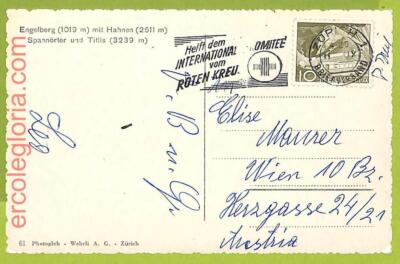 Engelberg (1019 m) mit Hahnen (2611 m)
Spannörter und Titlis (3239 m)
Helft dem
INTERNATIONAL OMITEE
vom
ROTEN KREU
10
Elise
Maurer
Wien 10 Bz.
Herzgasse 24/21
Austria
61 Photoglob - Wehrli A. G. - Zürich
ercolegloria.com